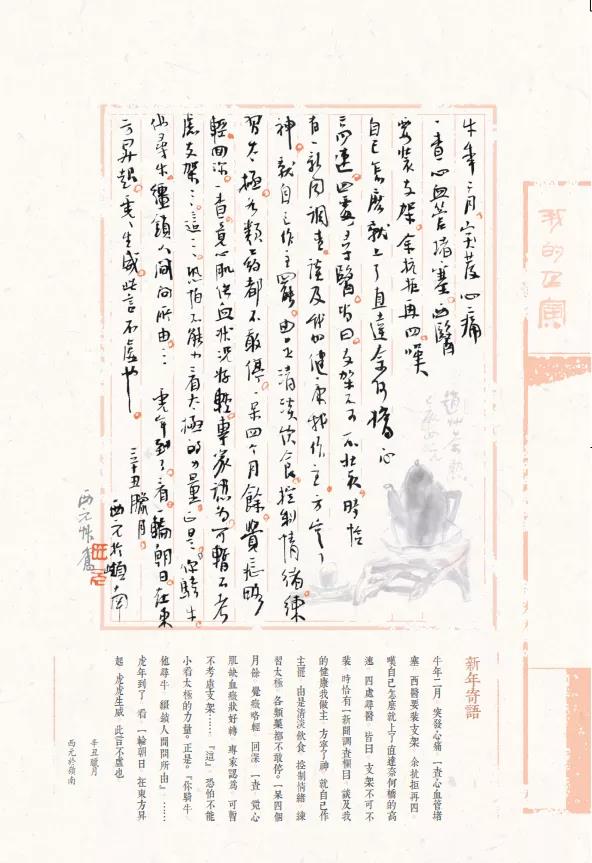 我的壬寅
牛年二月突發心痛
一查心血管堵塞西醫
要裝支架余抗拒再四嘆
自己怎麼就上了直達奈何橋的
高速四處尋醫皆曰支架不可不裝時恰
有一新聞調查談及我的健康我作主方寧了
神就自己作主罷由是清淡飲食控制情緒練
習太極各類藥都不敢停一呆四個月餘覺症略
輕回深一查覺心肌供血狀況好轉專家認為可暫不考
慮支架……這……恐怕不能小看太極的力量正是你騎牛
他尋牛韁鎖人間問所由……虎年到了看一輪朝日在東
方昇起虎虎生威此言不虛也
辛丑臘月
西元於嶺南
新年寄語
牛年二月 突發心痛 一查心血管堵
塞 西醫要裝支架 余抗拒再四
嘆自己怎麼就上了直達奈何橋的高
速 四處尋醫 皆曰 支架不可不
裝 時恰有【新聞調查欄目】談及我
的健康我做主 方寧了神 就自己作
主罷 由是清淡飲食 控制情緒 練
習太極 各類藥都不敢停。一呆四個
月餘 覺癥略輕 回深 一查 覺心
肌缺血癥狀好轉 專家認為 可暫
不考慮支架……『這』恐怕不能
小看太極的力量。正是。『你騎牛
他尋牛 韁鎖人間問所由』……
虎年到了 看 一輪朝日 在東方昇
起 虎虎生威 此言不虛也
辛丑臘月
西元於嶺南